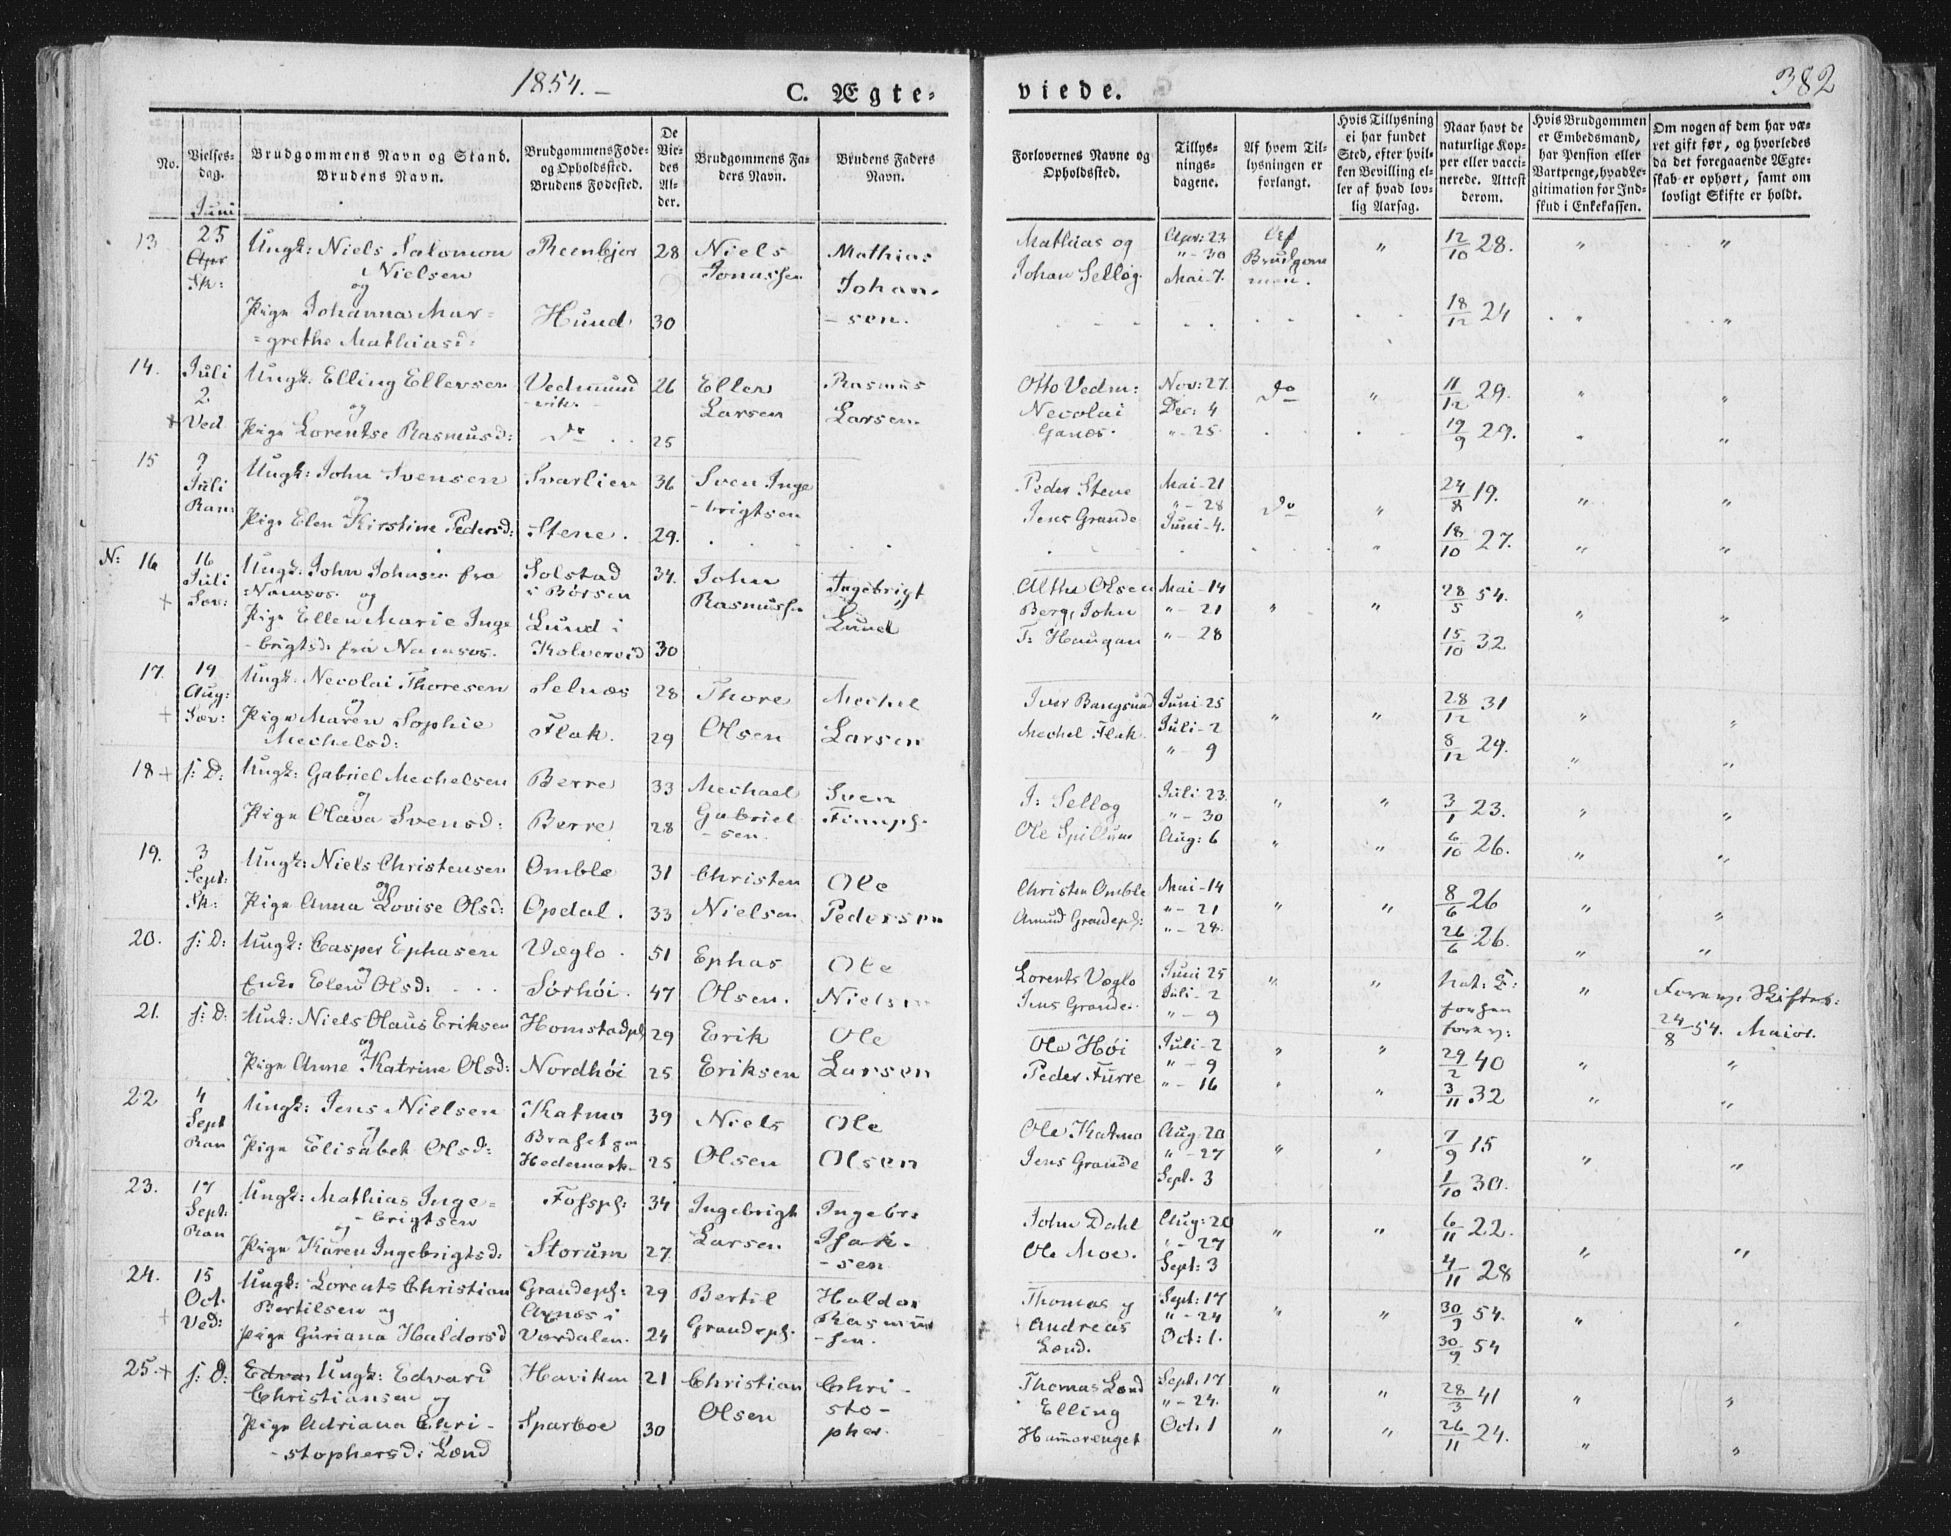 1854.
C. Ægte-
viede.
382
No.
Vielses-
dag.
Brudgommens Navn og Stand.
Brudens Navn.
Brudgommens Føde-
og Opholdssted.
Brudens Fødested.
De
Vie-
des
Al-
der.
Brudgommens Fa-
ders Navn.
Brudens Faders
Navn.
Forlovernes Navne og
Opholdssted.
Tillys-
nings-
dagene.
Af hvem Til-
lysningen er
forlangt.
Hvis Tillysning
ei har fundet
Sted, efter hvil-
ken Bevilling el-
ler af hvad lov-
lig Aarsag.
Naar havt de
naturlige Kop-
per eller vacci-
nerede. Attest
derom.
Hvis Brudgommen
er Embedsmand,
har Pension eller
Vartpenge, hvad Le-
gitimation for Ind-
skud i Enkekassen.
Om nogen af dem har væ-
ret gift før, og hvorledes
da det foregaaende Ægte-
skab er ophørt, samt om
lovligt Skifte er holdt.
Juni
13. 25 Ungk: Niels Salomon Reenbjor 28 Niels Mathias Mathias og Apr: 23 Af " 12/10 28. " "
Apr Nielsen Jonassen Johan- Johan Sellog. " - 30 Brudgom
Sk: og Mai - 7. men.
Pige Johanna Mar= Hund 30 -sen. 18/12 24 " "
=grethe Mathiasd:
14. Juli Ungk. Elling Ellersen Vedmund 26 Eller Rasmus Otto Vedm: Nov: 27. Do " 11/12 29. " "
2. og -vik. Larsen Larsen. Necolai Dec: 4
+ Ved. Pige Lorentse Rasmusd: Do 25 Ganæs. " - 25. 19/9 29. "
15 9 Ungk: John Svensen Svarlien 36 Sven Inge Peder Stene Mai - 21 Do " 24/8 19. " "
Juli og -brigtsen " - 28
Ran: Pige Elen Kirstine Pedersd: Stene. 29. Jens Grande Juni - 4. " 18/10 27. " "
N: 16 16 Ungk. John Johnsen fra Solstad 34. John Ingebrigt Olsen Mai - 14 " " 28/5 54. " "
Juli Namsos. og i Børsen Rasmussen Lund Berg, John " - 21
+ Sæv: Pige Ellen Marie Inge Lund i T: Haugan " - 28 15/10 32
-brigtsd: fra Namsos. Kolvereid 30
17. 19 Ungk. Necolai Thoresen Selnæs 28 Thore Mechel Iver Bangsund Juni - 25 " " 28/12 31 " "
Aug: og
+ Sæv: Pige Maren Sophie Flak. 29 Olsen Larsen Mechel Flak. Juli - 2 8/12 29. " "
Mechelsd: " - 9
18 + s: D: Ungk: Gabriel Mechelsen Berre 33 Mechael Sven J: Sellog Juli - 23. " " 3/1 23. " "
og Gabriel " - 30
Pige Olava Svensd: Berre 28 -sen. Ole Spillum Aug: 6 " " 6/10 26. " "
19. 3 Ungk: Niels Christensen Omble 31 Christen Ole Christen Omble Mai - 14 " " 8/6 26 " "
Sept: og " - 21
Sk: Pige Anna Lovise Olsd: Opdal. 33 Nielsen Pedersen Grandepl: " - 28. 26/6 26. " "
20. s: D: Ungk: Casper Ephasen Væglo 51 Ephas Ole Lorents Væglo Juni 25 " " "
og Juli - 2
Enke Elen Olsd: Sørhøi. 47 Olsen. Nielsen Jens Grande. " - 9 24/8 54.
21. s: D: Ungk: Niels Olaus Eriksen Homstadpl 29 Erik Ole Ole Høi Juli - 2 " " 29/2 40 " "
og " - 9
Pige Anne Katrine Olsd: Nordhøi 25 Eriksen Larsen Peder Furre " - 16 " " 3/11 32 " "
22 4 Ungk: Jens Nielsen Katmo 39 Niels Ole Ole Katmo Aug 20 " " 7/9 15 " "
Sept og " - 27
Ran Pige Elisabet Olsd: Hedemark. 25 Olsen Olsen Jens Grande Sept. 3 1/10 30.
23. 17 Ungk: Mathias Inge= Fosspl: 34 Ingebrigt Ingebr: John Dahl Aug: 20 " " 6/11 22. " "
Sept: -brigtsen " - 27
Ran og Larsen Isak-
Pige Karen Ingebrigtsd: Storum 27. -sen Ole Moe. Sept: 3 4/11 28
24. 15 Ungk: Lorents Christian Grandepl: 29 Bertil Haldor Thomas og Sept: 17 " " 30/9 54. " "
Oct. Bertilsen og Agnæs i Andreas " - 24
+ Ved: Pige Guriana Haldorsd Værdalen. 24 Grandepl. Rasmus
-sen. Lænd. Oct: 1. 30/9 54
25. + s: D: Edvar Ungk: Edvard Haviken 21 Christian Chri- Thomas Lænd Sept: 17 " " 28/3 41 " "
Christiansen og Olsen sto- Elling " - 24.
Pige Adriana Chri- Sparboe 30 pher. Hammerenget Oct: 1 " " 26/11 24. " "
-stophersd: Lænd